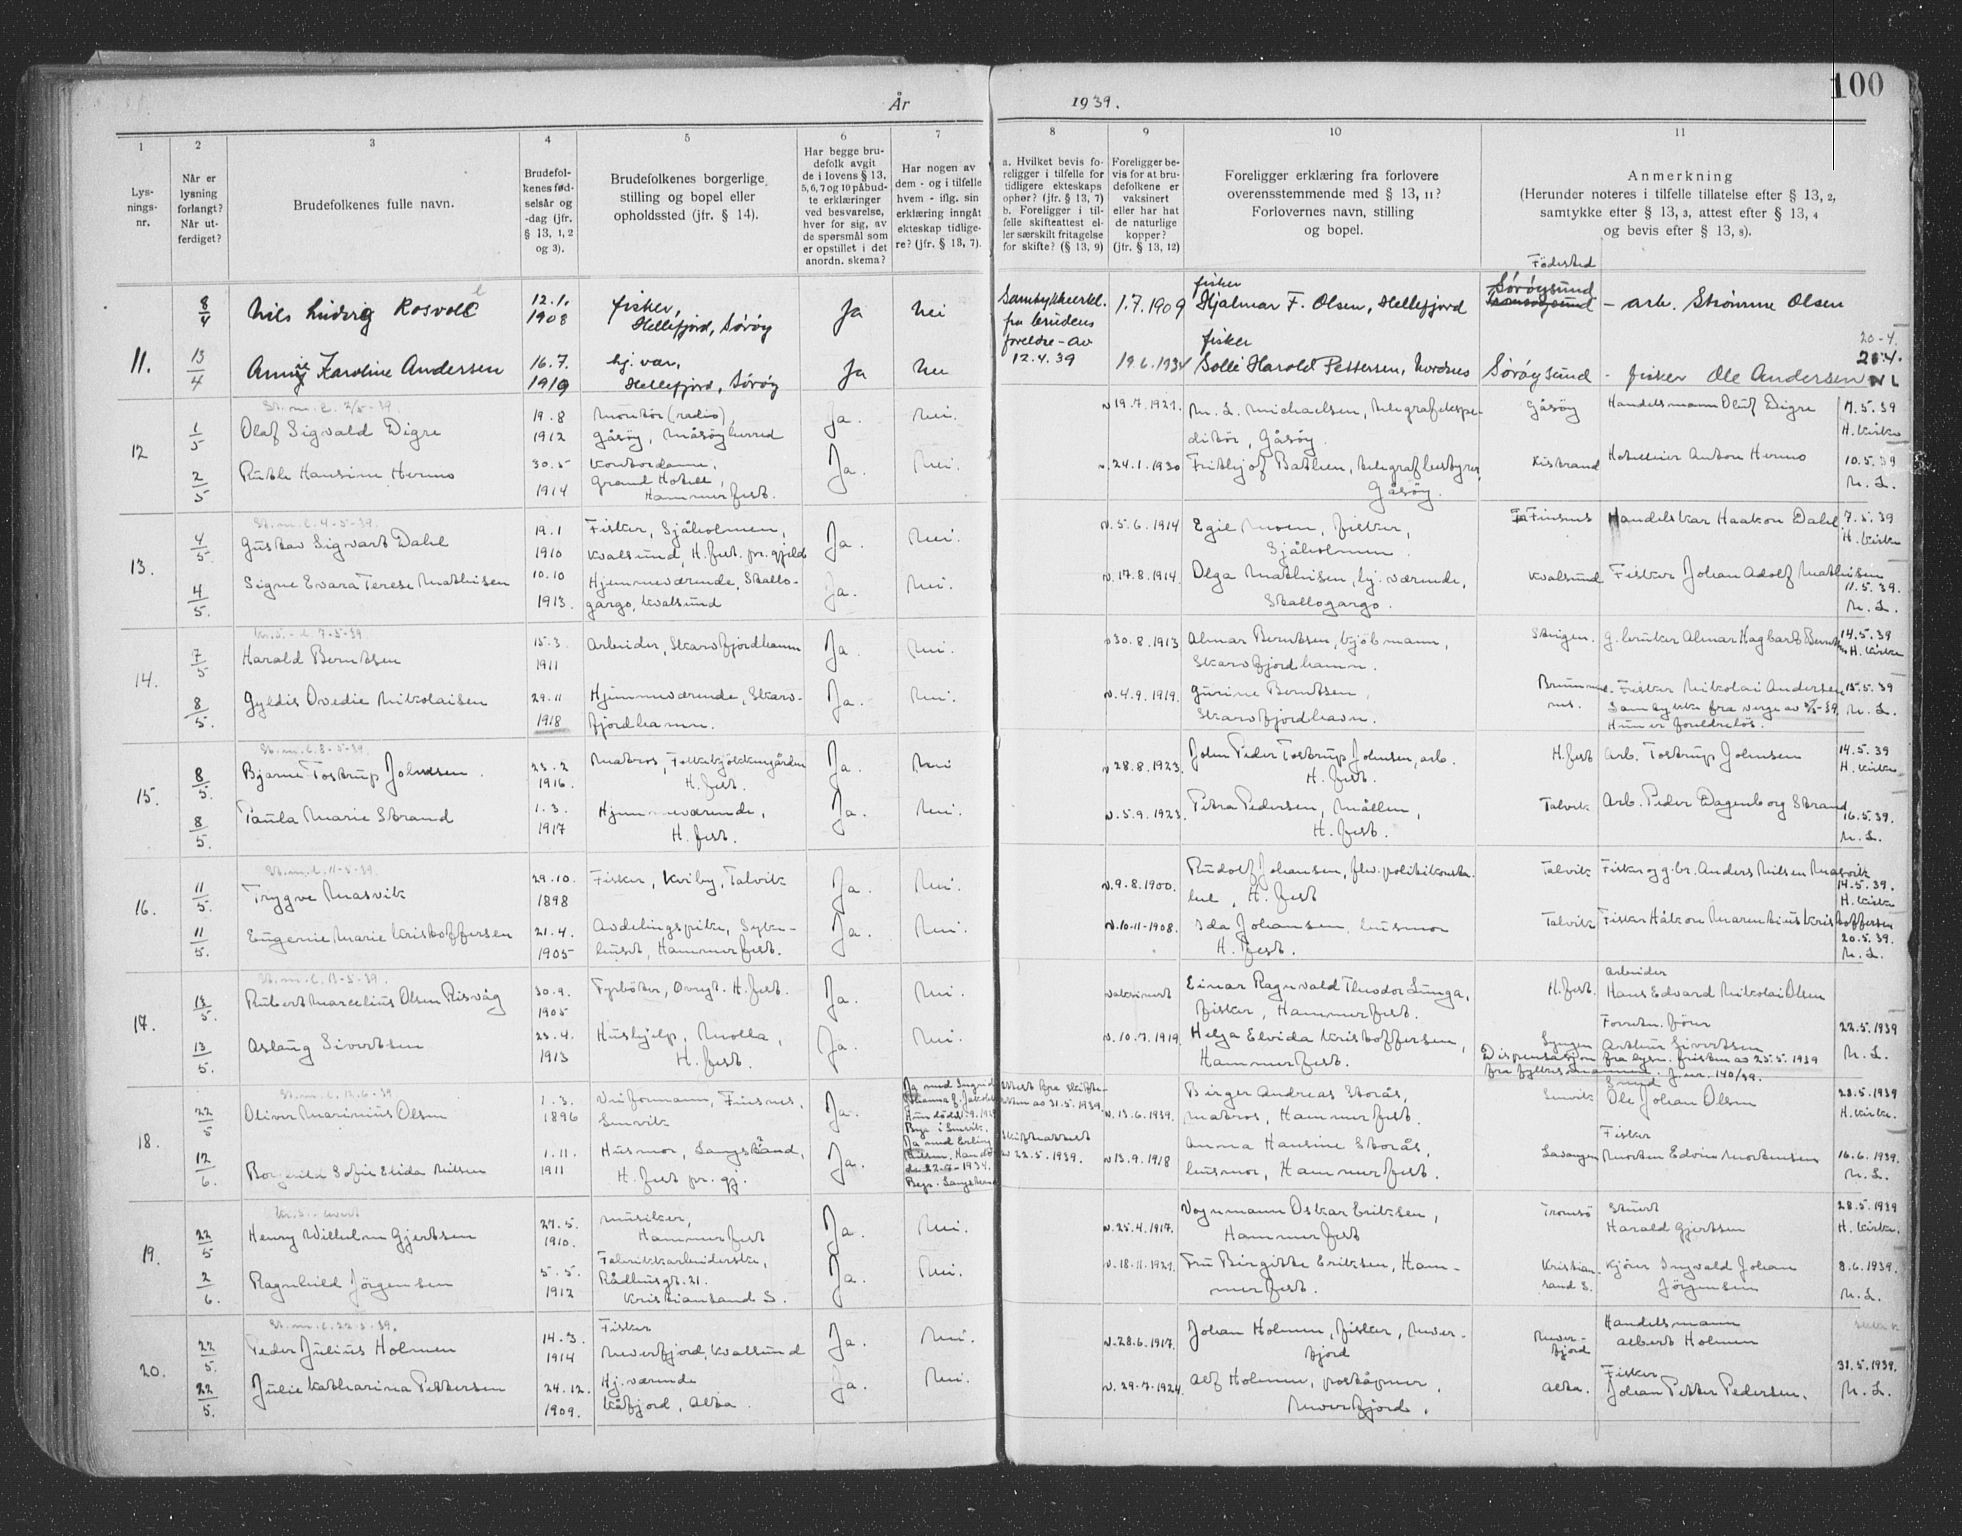 År 1939.
100
1 2 3 4 5 6 7 8 9 10 11
Lys-
nings-
nr.
Når er
lysning
forlangt?
Når ut-
ferdiget?
Brudefolkenes fulle navn.
Brudefol-
kenes fød-
selsår og
-dag (jfr.
§ 13, 1, 2
og 3).
Brudefolkenes borgerlige
stilling og bopel eller
opholdssted (jfr. § 14).
Har begge bru-
defolk avgit
de i lovens § 13,
5, 6, 7 og 10 påbud-
te erklæringer
ved besvarelse,
hver for sig, av
de spørsmål som
er opstillet i det
anordn. skema?
Har nogen av
dem - og i tilfelle
hvem - iflg. sin
erklæring inngått
ekteskap tidlige-
re? (jfr. § 13, 7).
a. Hvilket bevis fo-
religger i tilfelle for
tidligere ekteskaps
ophør? (jfr. § 13, 7)
b. Foreligger i til-
felle skifteattest el-
ler særskilt fritagelse
for skifte? (§ 13, 9)
Foreligger be-
vis for at bru-
defolkene er
vaksinert
eller har hat
de naturlige
kopper?
(jfr. § 13, 12)
Foreligger erklæring fra forlovere
overensstemmende med § 13, 11?
Forlovernes navn, stilling
og bopel.
Anmerkning
(Herunder noteres i tilfelle tillatelse efter § 13, 2,
samtykke efter § 13, 3, attest efter § 13, 4
og bevis efter § 13, 8).
Fødested
11.
8/4 Nils Ludvig Rosvoll 12.1. 1908 fisker, Hellefjord, Sørøy Ja Nei
fra brudens
foreldre - av
12.4.39
1.7.1909 fisker Hjalmar F. Olsen, Hellefjord Sørøysund - arb. Strømme Olsen
13/4 Annie Karoline Andersen 16.7. 1919 hj. vær, Hellefjord, Sørøy Ja Nei
19.6.1934 fisker Harald Pettersen, Sørøysund - fisker Ole Andersen
20-4.
12
1/5 Olaf Sigvald Digre 19.8 1912 Montør (radio), Gåsøy, Måsøy herred Ja. Nei.
v 19.7.1921. M. L. Michaelsen, telegrafekspe-
ditør, Gåsøy.
Gåsøy Handelsmann Oluf Digre 7.5.39 H. Kirke
2/5 Ruth Hansine Hermo 30.5 1914 Kontordame, Grand Hotell, Hammerfest. Ja. Nei.
v. 24.1.1930 Frithjof Bathen, telegrafbestyrer, Gåsøy.
Kistrand Hotelleier Anton Hermo 10.5.39 N. L.
13.
St. m. l. 4-5-39.
4/5 Gustav Sigvart Dahl 19.1 1910 Fisker, Sjåholmen, Kvalsund, H.fest. pr. gjeld Ja. Nei.
v. 5.6.1914 Egil Moen, fisker, Sjåholmen.
Finsnes Handelskar Haakon Dahl 7.5.39 H. Kirke
4/5. Signe Evara Terese Mathisen 10.10 1913. Hjemmeværende, Skallo-
gargo, Kvalsund Ja. Nei.
v. 17.8.1914. Olga Mathisen, hj. værende, Skallogargo.
Kvalsund Fisker Johan Adolf Mathisen 11.5.39. N. L.
14.
7/5 Harald Berntsen 15.3 1911 Arbeider, Skarvfjordhamn Ja. Nei.
v 30.8.1913 Almar Berntsen, kjøbmann, Skarvfjordhamn.
Steigen. g.bruker Almar Hagbart Berntsen 14.5.39 H. Kirke
8/5. Gyldis Ovedie Nikolaisen 29.11 1918 Hjemmeværende, Skarv-
fjordhamn. Ja. Nei.
v. 4.9.1919. Gurine Berntsen, Skarvfjordhavn.
Fisker Nikolai Andersen 15.5.39
Samtykke fra verge av 9/5-39. N. L.
Hun er foreldreløs.
15.
St. m. l. 8-5-39.
8/5. Bjarne Tostrup Johnsen. 23.2 1916. Matros, Folkekjøkkengården H. fest. Ja. Nei
v 28.8.1923. John Peder Tostrup Johnsen, arb. H. fest.
H. fest Arb. Tostrup Johnsen 14.5.39 H. Kirke
8/5. Paula Marie Strand 1.3. 1917 Hjemmeværende, H. fest. Ja. Nei.
v. 5.9.1923. Petra Pedersen, Møllen, H. fest.
Talvik Arb. Peder Dagenborg Strand 16.5.39. N. L.
16.
St. m. l. 11-5-39.
11/5. Trygve Masvik 29.10. 1898 Fisker, Kviby, Talvik Ja. Nei.
v. 9.8.1900. Rudolf Johansen, H. fest
Talvik Fisker og g.br. Anders Nilsen Masvik 14.5.39. H. Kirke
11/5. Eugenie Marie Kristoffersen 21.4. 1905 Avdelingspike, Syke-
huset, Hammerfest. Ja. Nei.
v. 10-11-1908. Ida Johansen, husmor H. fest.
Talvik Fisker Håkon Marentius Kristoffersen 20.5.39. N. L.
17.
St. m. l. 13-5-39.
13/5. Robert Marcelius Olsen Risvåg 30.9. 1905 Fyrbøter, H. fest. Ja. Nei.
vaksinert Einar Ragnvald Theodor Lunga, fisker, Hammerfest.
H. fest. Arbeider Hans Edvard Nikolai Olsen
13/5. Aslaug Sivertsen 23.4. 1913 Hushjelp, Molla, H. fest. Ja. Nei.
v. 10.7.1919 Helga Elvida Kristoffersen, Hammerfest.
Lyngen Forretn. fører Arthur Sivertsen 22.5.1939 N. L.
Dispensasjon fra lysn. fristen av 25.5.1939
fra fylkesmannen. j.nr. 140/39.
18.
St. m. l. 12-6-39
22/5 Oliver Marinius Olsen 1.3. 1896 Finsnes, Lenvik Ja.
v. 13.6.1939. Birger Andreas Storås, matros, Hammerfest.
Lenvik Smed Ole Johan Olsen 28.5.1939 H. Kirke.
12/6. Borghild Sofie Elida Nilsen 1.11. 1911 Husmor, Langstrand, H. fest pr. gj. Ja.
Ja med Erling Nilsen.
22-7-1934.
Skifteattest
av 22.5.1939.
v 13.9.1918 Anna Hansine Storås, husmor, Hammerfest.
Lavangen Fisker Morten Edvin Mortensen 16.6.1939. N. L.
19.
22/5 Henry Wilhelm Gjertsen 27.5. 1910. Musiker, Hammerfest Ja. Nei.
v. 25.4.1917. Vognmann Oskar Eriksen, Hammerfest
Tromsø Stuert Harald Gjertsen 28.5.1939 H. Kirke.
2/6. Ragnhild Jörgensen 5.5. 1912 Fabrikkarbeiderske, Rådhusgt. 21. Kristiansand S. Ja. Nei.
v. 18.11.1921. Fru Birgitte Eriksen, Ham-
merfest.
Kristian-
sand S. Kjører Ingvald Johan Jörgensen 8.6.1939. N. L.
20.
St. m. l. 22-5-39.
22/5. Peder Julius Holmen 14.3. 1914 Fisker Neverfjord, Kvalsund Ja. Nei.
v. 28.6.1917. Johan Holmen, fisker, Never-
fjord
Never-
fjord Handelsmann Albert Holmen
22/5. Julie Katharina Pettersen 24.12. 1909. Hj. værende Kåfjord, Alta. Ja. Nei.
v. 29.7.1924. Alf Holmen, poståpner, Neverfjord.
Alta. Fisker Johan Petter Pedersen. 31.5.1939. N. L.